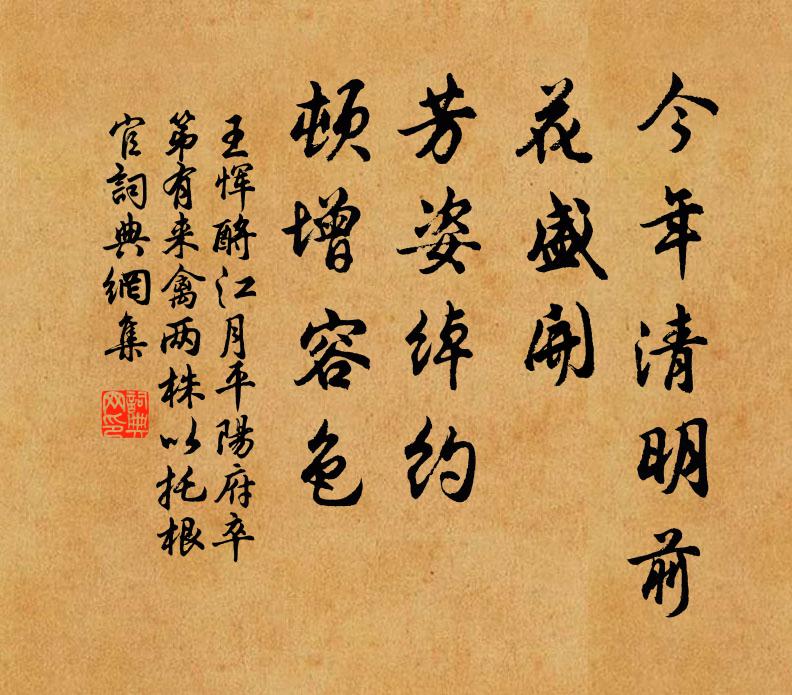 今年清明前
花盛開
芳姿綽约
頓增容色
王恽酹江月平陽府卒
第有来禽两株以托根
官詞典網集
詞典
网印